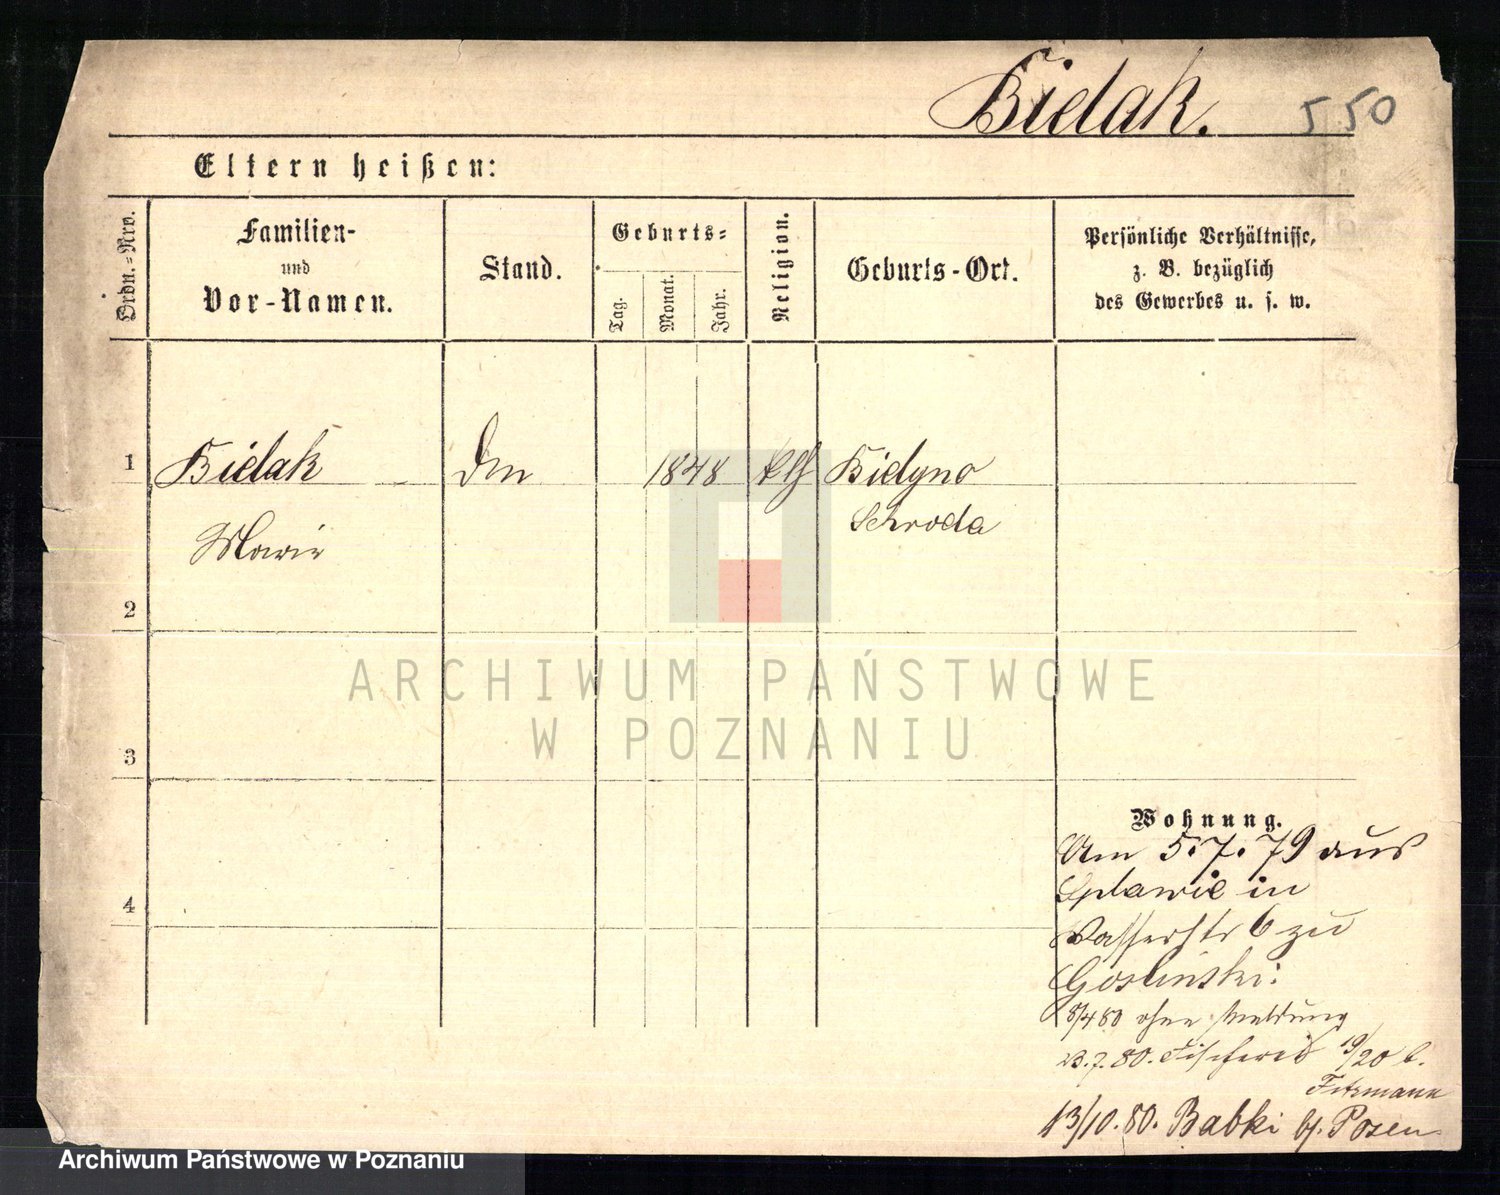 Bielak.
550
Eltern heißen:
Ordn.-Nro.
Familien-
und
Vor-Namen.
Stand.
Geburts-
Tag.
Monat.
Jahr.
Religion.
Geburts-Ort.
Persönliche Verhältnisse,
z. B. bezüglich
des Gewerbes u. s. w.
1
Bielak
1848
Schroda
Marie
2
3
4
ARCHIWUM PAŃSTWOWE
W POZNANIU
Wohnung.
Am 5.7.79 aus
Splawie in
Wasserstr 6 zu
Goslinski:
8/4 80 ohne Meldung
23.7.80. Fischerei 19/20 b.
13/10.80. Babki b/. Posen
Archiwum Państwowe w Poznaniu